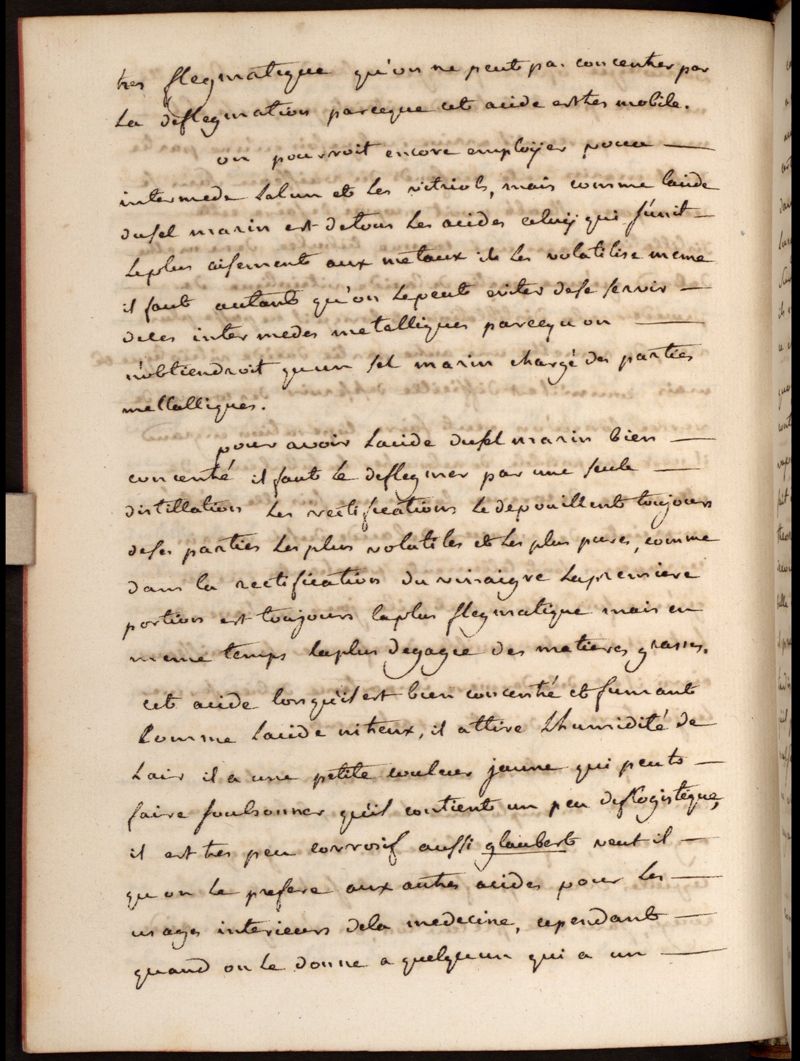 tres flegmatique qu'on ne peut pas concentrer par
La deflegmation parceque cet acide est tres mobile.
on pourroit encore employer pour
intermede Lalun et les vitriols, mais comme lacide
dusel marin est detous Les acides celuy qui s'unit
Leplus aisement aux metaux et les volatilise meme
il faut autant qu'on Lepeut eviter dese servir
deces intermedes metalliques parcequon
n'obtiendroit qu'un sel marin chargé des parties
metalliques.
pour avoir Lacide dusel marin bien
concentré il faut le deflegmer par une seule
distillation Les rectifications Le depouillent toujours
deses parties Les plus volatiles et les plus pures, comme
dans la rectification du vinaigre Lapremiere
portion est toujours laplus flegmatique mais en
meme temps Laplus degagée des matieres grasses.
cet acide lorsqu'il est bien concentré et fumant
Comme Lacide nitreux, il attire Lhumidité de
Lair il a une petite couleur jaune qui peut
faire soubsonner qu'il contient un peu deflogistique,
il est tres peu corrosif aussi glaubert veut il
qu'on Le prefere aux autres acides pour les
usages interieurs dela medecine, cependant
quand on Le donne a quelqu'un qui a un